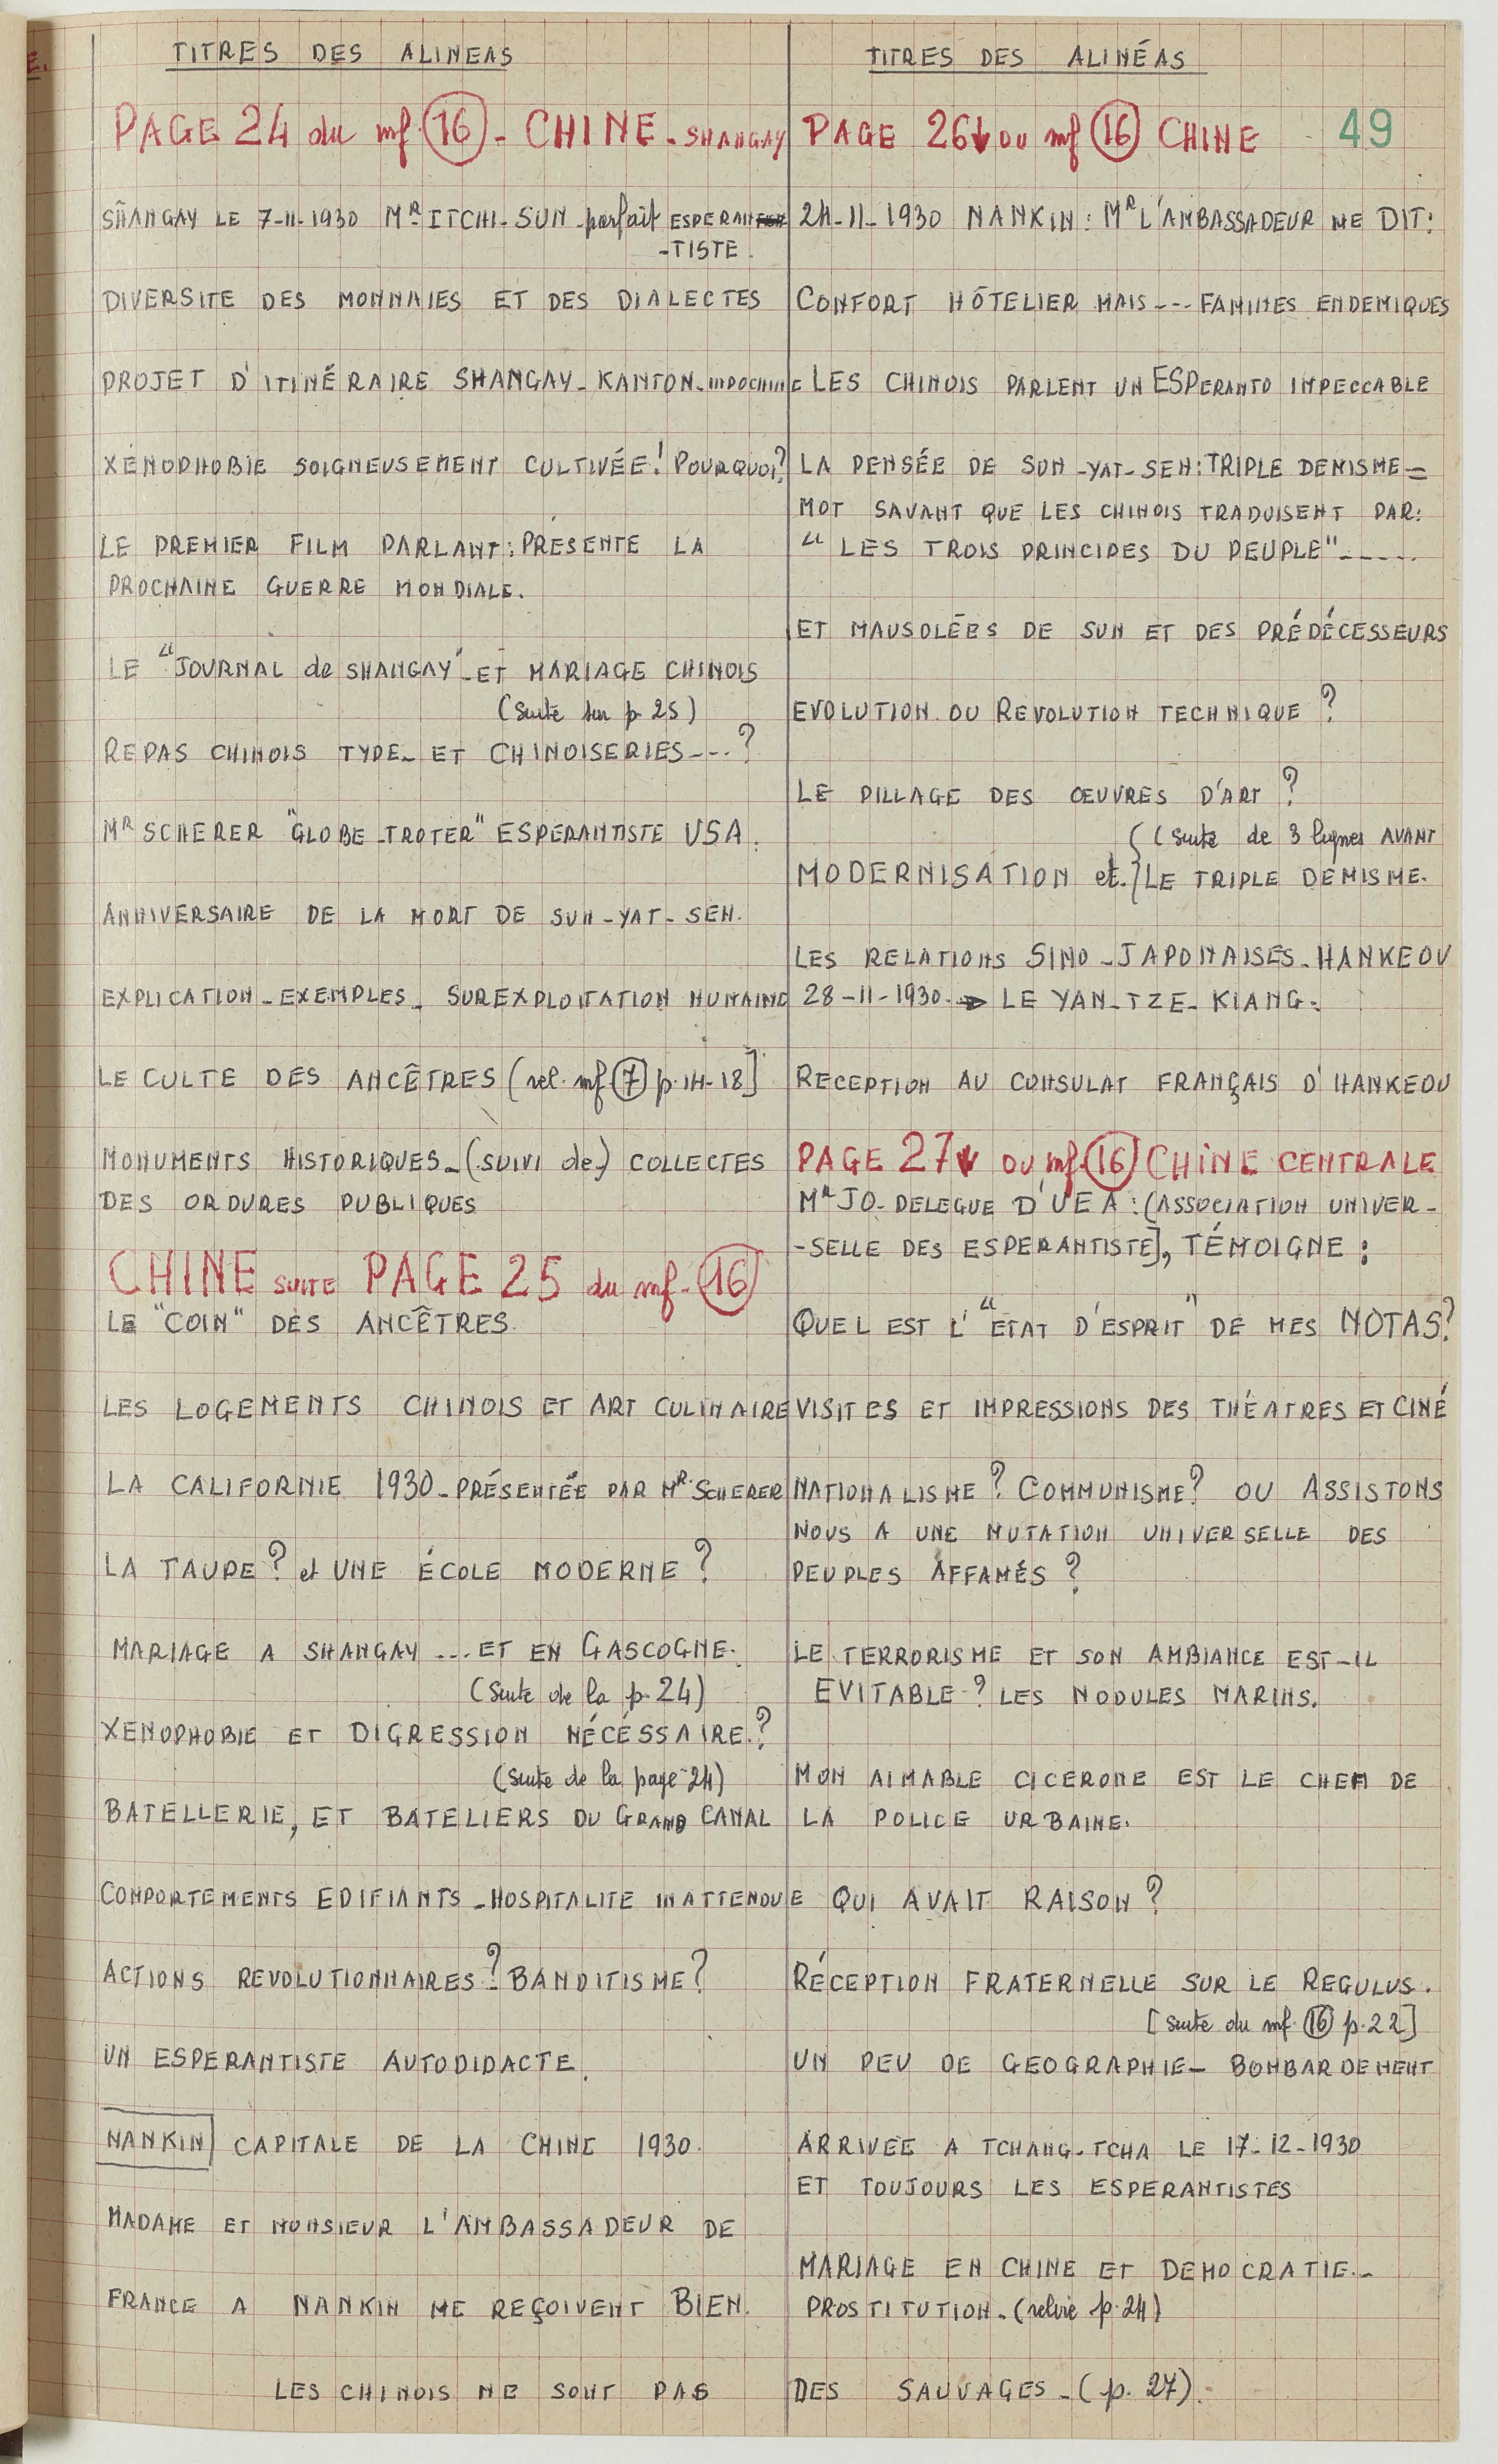 TITRES DES ALINEAS
PAGE 24 du mf. 16 - CHINE - SHANGAY
SHANGAY LE 7-11-1930 MR ITCHI-SUN parfait ESPERAN
-TISTE.
DIVERSITE DES MONNAIES ET DES DIALECTES
PROJET D'ITINÉRAIRE SHANGAY - KANTON - INDOCHINE
XÉNOPHOBIE SOIGNEUSEMENT CULTIVÉE! POURQUOI?
LE PREMIER FILM PARLANT: PRÉSENTE LA
PROCHAINE GUERRE MONDIALE.
LE "JOURNAL de SHANGAY" - ET MARIAGE CHINOIS
(Suite sur p. 25)
REPAS CHINOIS TYPE - ET CHINOISERIES---?
MR SCHERER "GLOBE-TROTER" ESPERANTISTE USA.
ANNIVERSAIRE DE LA MORT DE SUN-YAT-SEN.
EXPLICATION - EXEMPLES - SUREXPLOITATION HUMAINE
LE CULTE DES ANCÊTRES (rel. mf 7 p. 14-18]
MONUMENTS HISTORIQUES - (SUIVI de) COLLECTES
DES ORDURES PUBLIQUES
CHINE SUITE PAGE 25 du mf. 16
LE "COIN" DES ANCÊTRES
LES LOGEMENTS CHINOIS ET ART CULINAIRE
LA CALIFORNIE 1930 - PRÉSENTÉE PAR MR SCHERER
LA TAUPE? et UNE ÉCOLE MODERNE?
MARIAGE A SHANGAY --- ET EN GASCOGNE.
(Suite de la p. 24)
XENOPHOBIE ET DIGRESSION NÉCÉSSAIRE?
(Suite de la page 24)
BATELLERIE, ET BATELIERS DU GRAND CANAL
COMPORTEMENTS EDIFIANTS - HOSPITALITE INATTENDUE
ACTIONS REVOLUTIONNAIRES? BANDITISME?
UN ESPERANTISTE AUTODIDACTE.
NANKIN CAPITALE DE LA CHINE 1930.
MADAME ET MONSIEUR L'AMBASSADEUR DE
FRANCE A NANKIN ME REÇOIVENT BIEN.
TITRES DES ALINÉAS
PAGE 26 ↓ DU mf 16 CHINE 49
24-11-1930 NANKIN: MR L'AMBASSADEUR ME DIT:
CONFORT HÔTELIER MAIS --- FAMINES ENDEMIQUES
LES CHINOIS PARLENT UN ESPERANTO IMPECCABLE
LA PENSÉE DE SUN-YAT-SEN: TRIPLE DEMISME =
MOT SAVANT QUE LES CHINOIS TRADUISENT PAR:
"LES TROIS PRINCIPES DU PEUPLE"-----
ET MAUSOLÉES DE SUN ET DES PRÉDÉCESSEURS
EVOLUTION OU REVOLUTION TECHNIQUE?
LE PILLAGE DES ŒUVRES D'ART?
(Suite de 3 lignes AVANT
MODERNISATION et. LE TRIPLE DEMISME.
LES RELATIONS SINO-JAPONAISES - HANKEOU
28-11-1930. → LE YAN-TZE-KIANG.
RECEPTION AU CONSULAT FRANÇAIS D'HANKEOU
PAGE 27 ↓ DU mf. 16 CHINE CENTRALE
MR JO - DELEGUE D'UEA: (ASSOCIATION UNIVER-
-SELLE DES ESPERANTISTE], TÉMOIGNE:
QUEL EST L'"ETAT D'ESPRIT" DE MES NOTAS?
VISITES ET IMPRESSIONS DES THÉATRES ET CINÉ
NATIONALISME? COMMUNISME? OU ASSISTONS
NOUS A UNE MUTATION UNIVERSELLE DES
PEUPLES AFFAMÉS?
LE TERRORISME ET SON AMBIANCE EST-IL
EVITABLE? LES NODULES MARINS.
MON AIMABLE CICERONE EST LE CHEF DE
LA POLICE URBAINE.
QUI AVAIT RAISON?
RÉCEPTION FRATERNELLE SUR LE REGULUS.
[suite du mf. 16 p. 22]
UN PEU DE GEOGRAPHIE - BOMBARDEMENT
ARRIVEE A TCHANG-TCHA LE 17-12-1930
ET TOUJOURS LES ESPERANTISTES
MARIAGE EN CHINE ET DEMOCRATIE -
PROSTITUTION - (relire p. 24)
LES CHINOIS NE SONT PAS DES SAUVAGES - (p. 27).